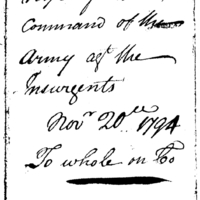 Command of the
Army agt the
Insurgents
Novr 20th 1794
To whole on